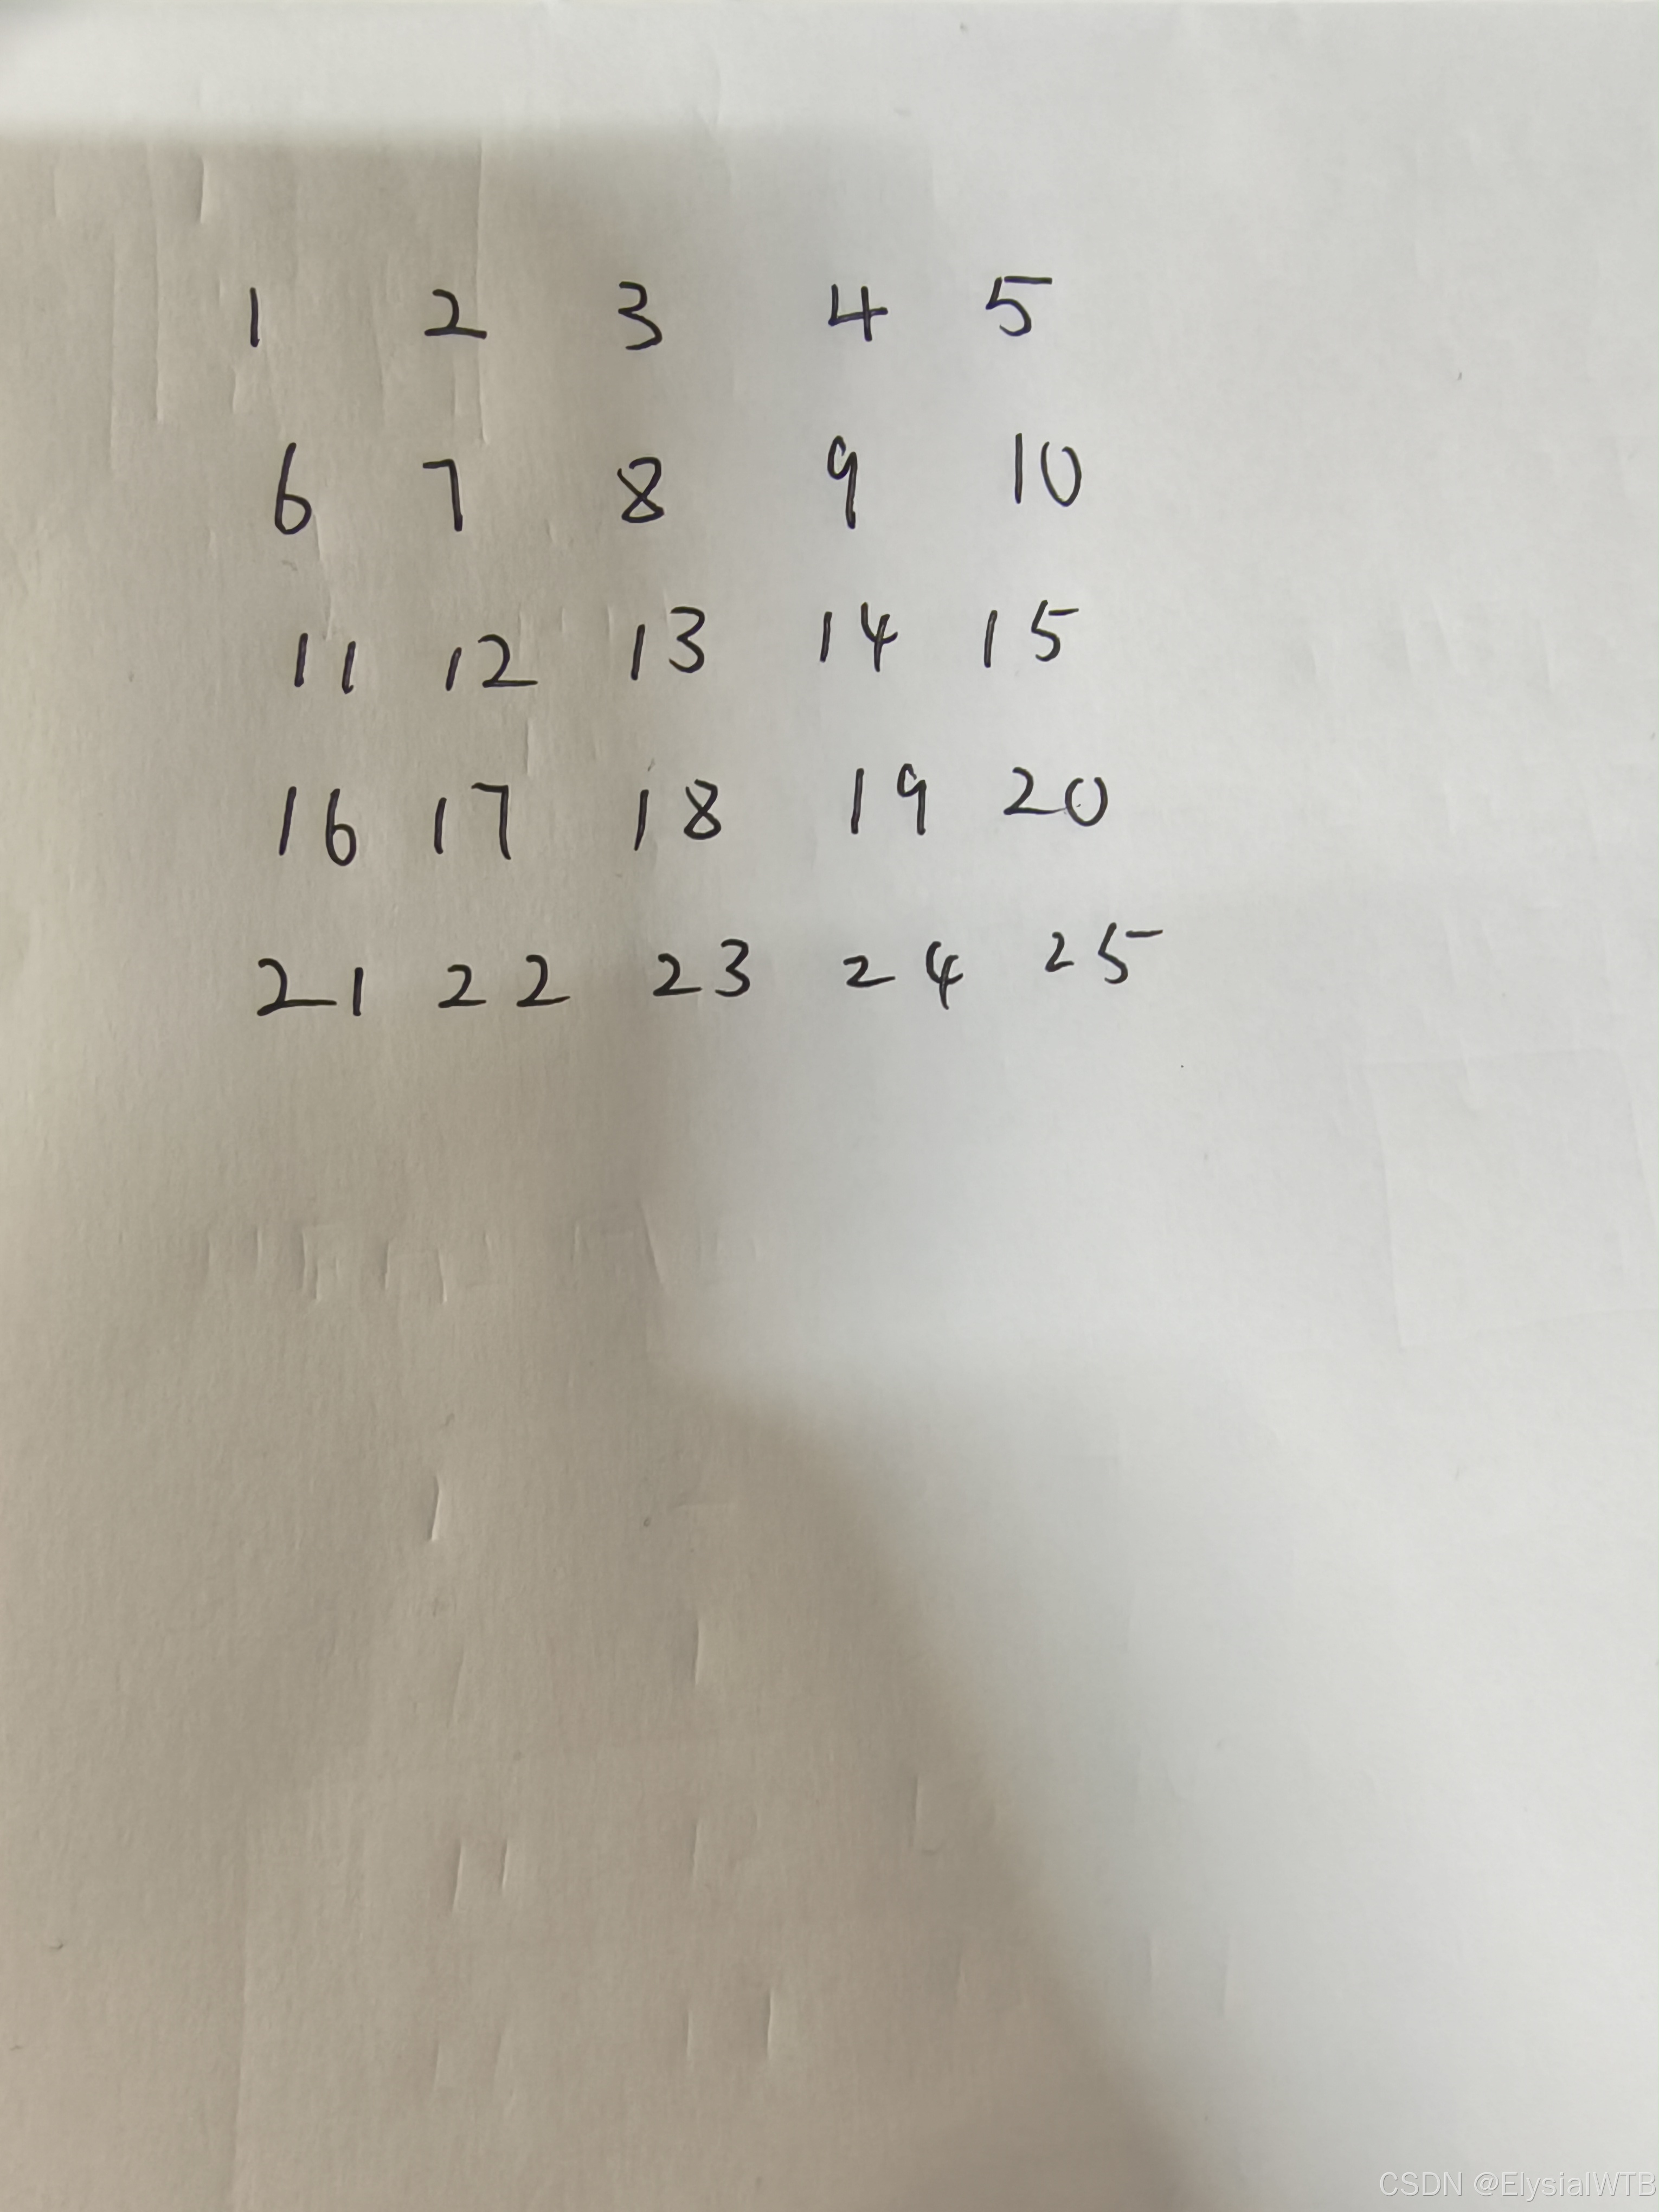 1 2 3 4 5
6 7 8 9 10
11 12 13 14 15
16 17 18 19 20
21 22 23 24 25
CSDN @ElysialWTB